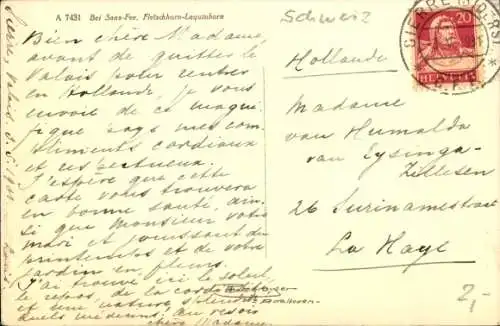 A 7431 Bei Saas-Fee, Fletschhorn-Laquinhorn
Schweiz
Bien chère Madame,
avant de quitter le
Valais pour rentrer
en Hollande, je vous
envoie de ce magni-
fique pays mes com-
pliments cordiaux
et respectueux.
J'espère que cette
carte vous trouvera
en bonne santé, ain-
si que Monsieur votre
mari et jouissant du
printemps et de votre
jardin en fleurs.
J'ai trouvé ici le soleil
le repos, de la
et une nature
chère Madame
SIERRE
20
HELVETIA
Hollande
Madame
van Humalda
van Eysinga-
Zillesen
26 Surinamestraat
La Haye
2,-